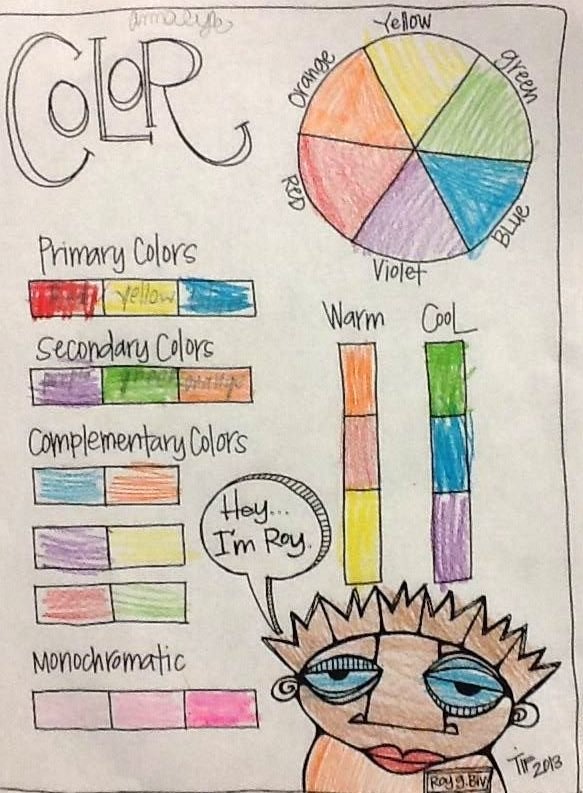 COLOR
Yellow
Orange
green
RED
BLUE
Violet
Primary Colors
Red
Yellow
Warm
Cool
Secondary Colors
purple
green
orange
Complementary Colors
Hey...
I'm Roy.
Monochromatic
Roy g. Biv
2013